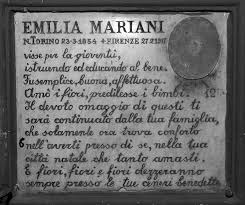 EMILIA MARIANI
N. TORINO 23-3-1854 + FIRENZE 27-2-1917
visse per la gioventù,
istruendo ed educando al bene.
Fu semplice, buona, affettuosa.
Amò i fiori, predilesse i bimbi.
Il devoto omaggio di questi ti
sarà continuato dalla tua famiglia,
che solamente ora trova conforto
nell'averti presso di se, nella tua
città natale che tanto amasti.
E fiori, fiori e fiori
sempre presso le tue ceneri benedette